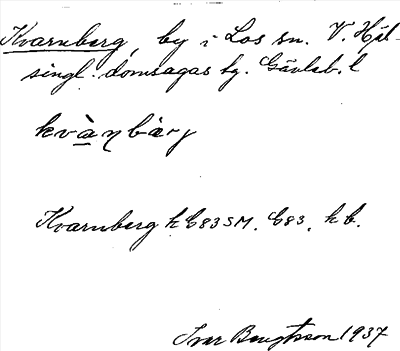 Kvarnberg, by i Los sn. V. Häl-
singl. domsagas tg. Gävleb. l
kvàṇbærj
Kvarnberg h E83SM. E83, kb.
Ivar Bengtsson 1937